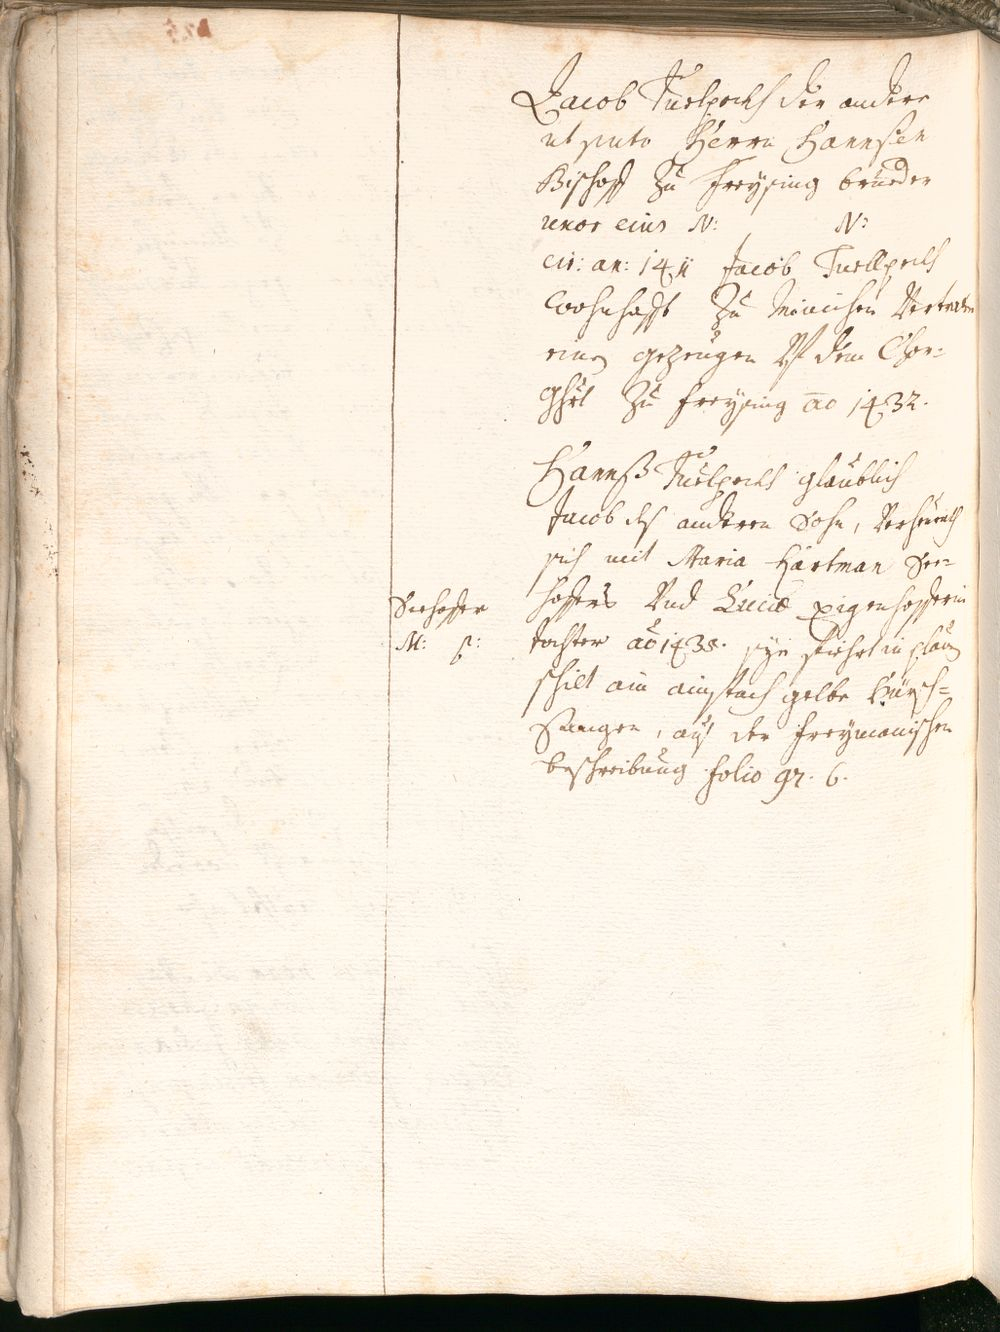 Jacob Tuelpeckh der andere
ut puto Herrn Hannsen
Bischoff Zu Freysing brueder
uxor eius N: N:
cir: an: 1411 Jacob Tuellpeckh
wohnhafft Zu München
einen gezeugen Uf dem Chor-
Ghrt Zu Freysing ao 1432.
Hannß Tuelpeckh glaublich
Jacob des anderen Sohn, Verheurath
sich mit Maria Hartman See-
hofers Und Luciæ Eigenhofferin
tochter ao 1438. sye fiehrt in plaw
schilt ain ainfach gelbe Hürsch-
Stangen, auß der Freymanischen
beschreibung folio 97. 6.
Seehoffer
M: p: